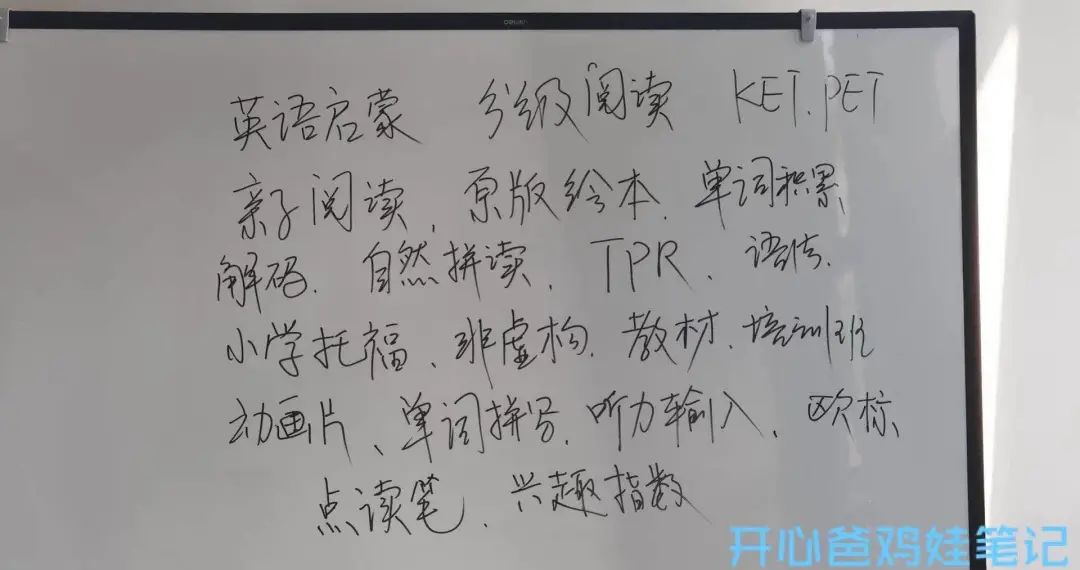 deli
英语启蒙 分级阅读 KET.PET
亲子阅读、原版绘本、单词积累、
解码、自然拼读、TPR、语法、
小学托福、非虚构、教材、培训班
动画片、单词拼写、听力输入、欧标、
点读笔、兴趣指数
开心爸鸡娃笔记